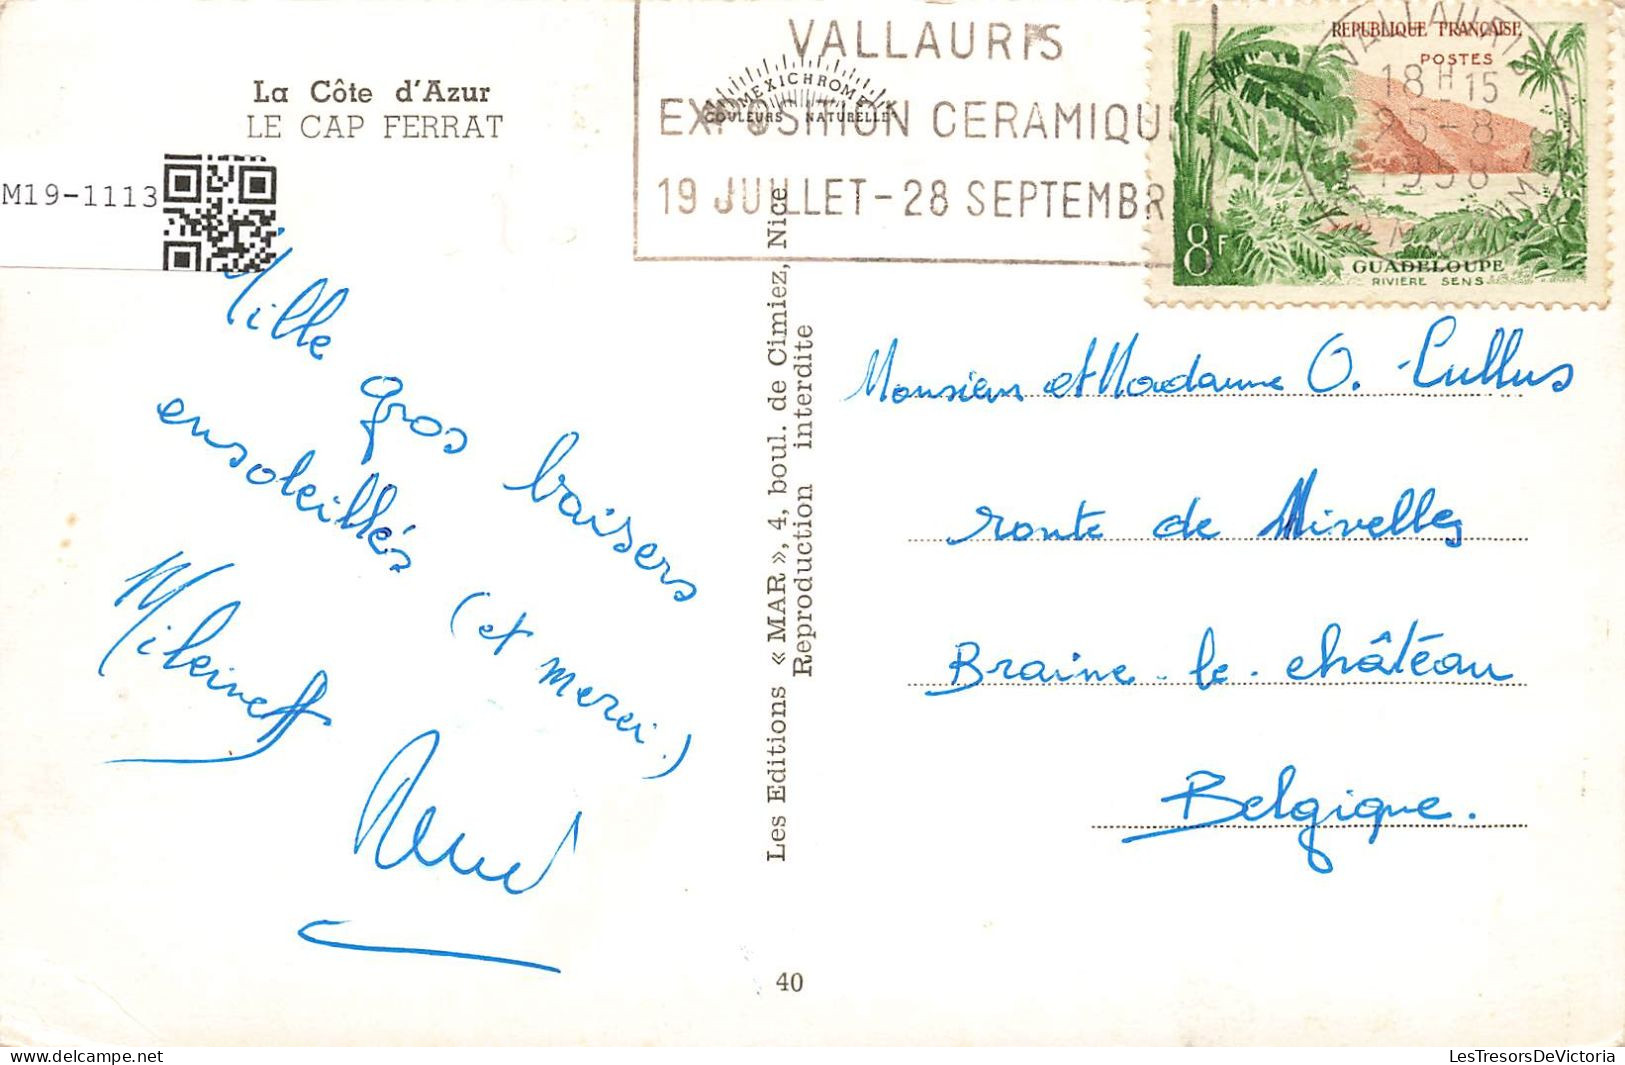 La Côte d'Azur
LE CAP FERRAT
M19-1113
VALLAURIS
EXPOSITION CERAMIQU
19 JUILLET - 28 SEPTEMBR
MEXICHROME
COULEURS NATURELLES
REPUBLIQUE FRANÇAISE
POSTES
18H15
25-8
1958
8F
GUADELOUPE
RIVIÈRE SENS
Mille
gros baisers
ensoleillés (et merci.)
Les Editions « MAR », 4, boul. de Cimiez, Nice
Reproduction interdite
40
Monsieur et Madame O. Cullus
route de Nivelles
Braine-le-château
Belgique.
LesTresorsDeVictoria